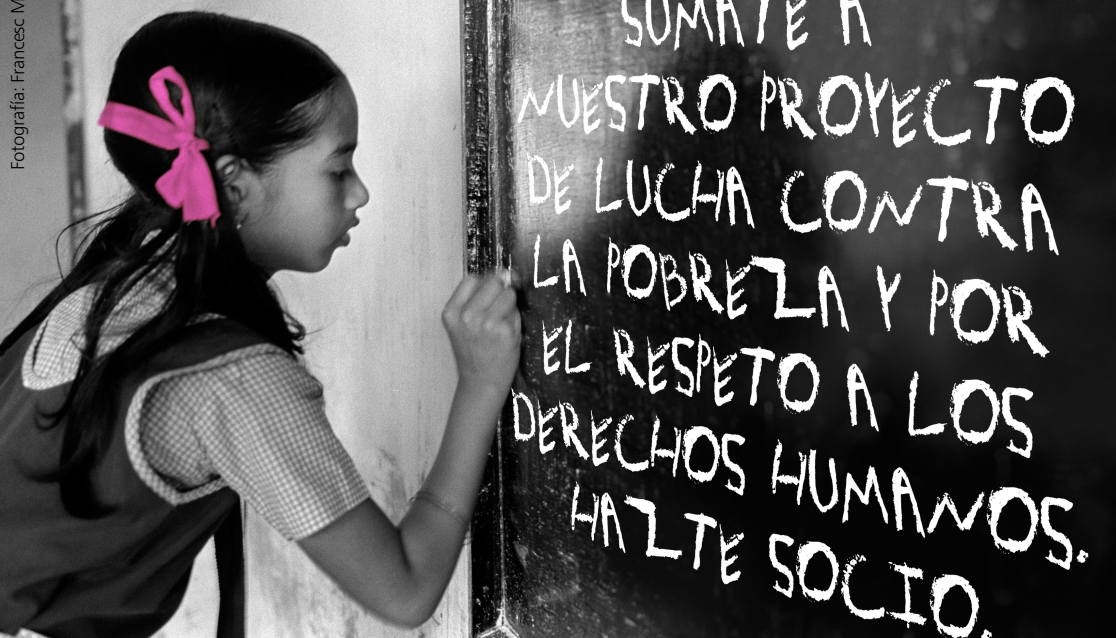 Fotografía: Francesc M
SÚMATE A
NUESTRO PROYECTO
DE LUCHA CONTRA
LA POBREZA Y POR
EL RESPETO A LOS
DERECHOS HUMANOS.
HAZTE SOCIO.